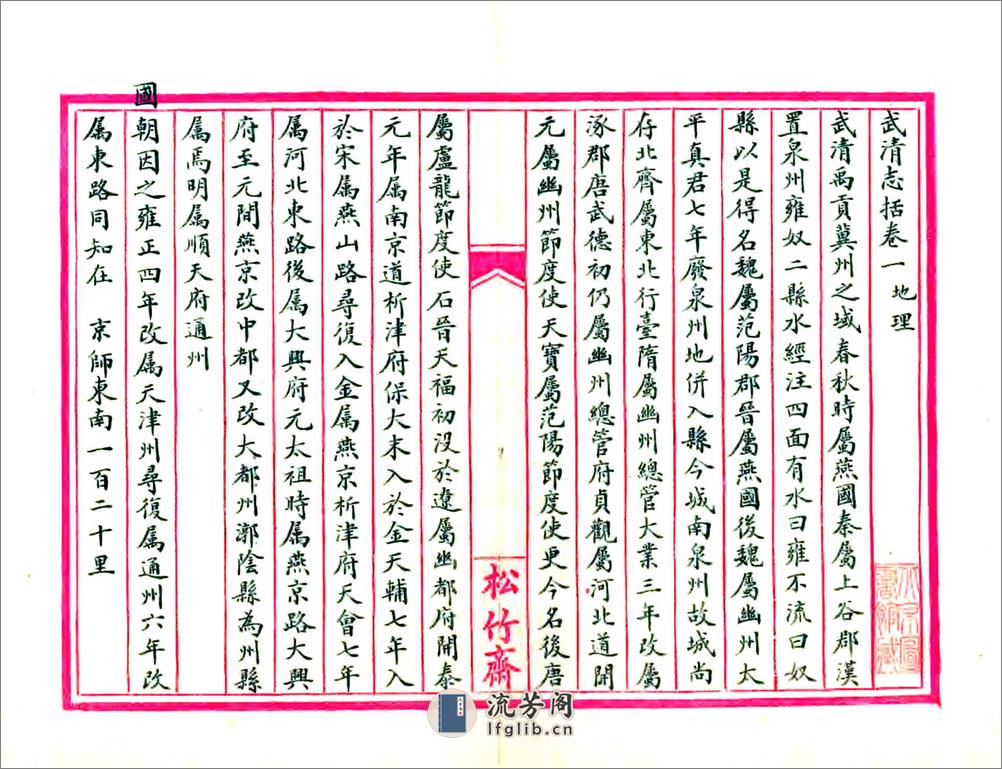 武清志括卷一 地理
武清禹貢冀州之域春秋時屬燕國秦屬上谷郡漢
置泉州雍奴二縣水經注四面有水曰雍不流曰奴
縣以是得名魏屬范陽郡晉屬燕國後魏屬幽州太
平真君七年廢泉州地併入縣今城南泉州故城尚
存北齊屬東北行臺隋屬幽州總管大業三年改屬
涿郡唐武德初仍屬幽州總管府貞觀屬河北道開
元屬幽州節度使天寶屬范陽節度使更今名後唐
松竹齋
屬盧龍節度使 石晉天福初沒於遼屬幽都府開泰
元年屬南京道析津府保大末入於金天輔七年入
於宋属燕山路尋復入金属燕京析津府天會七年
属河北東路後属大興府元太祖時属燕京路大興
府至元間燕京改中都又改大都州漷陰縣為州縣
属焉明属順天府通州
國朝因之雍正四年改属天津州尋復属通州六年改
属東路同知在 京師東南一百二十里
流芳阁
lfglib.cn